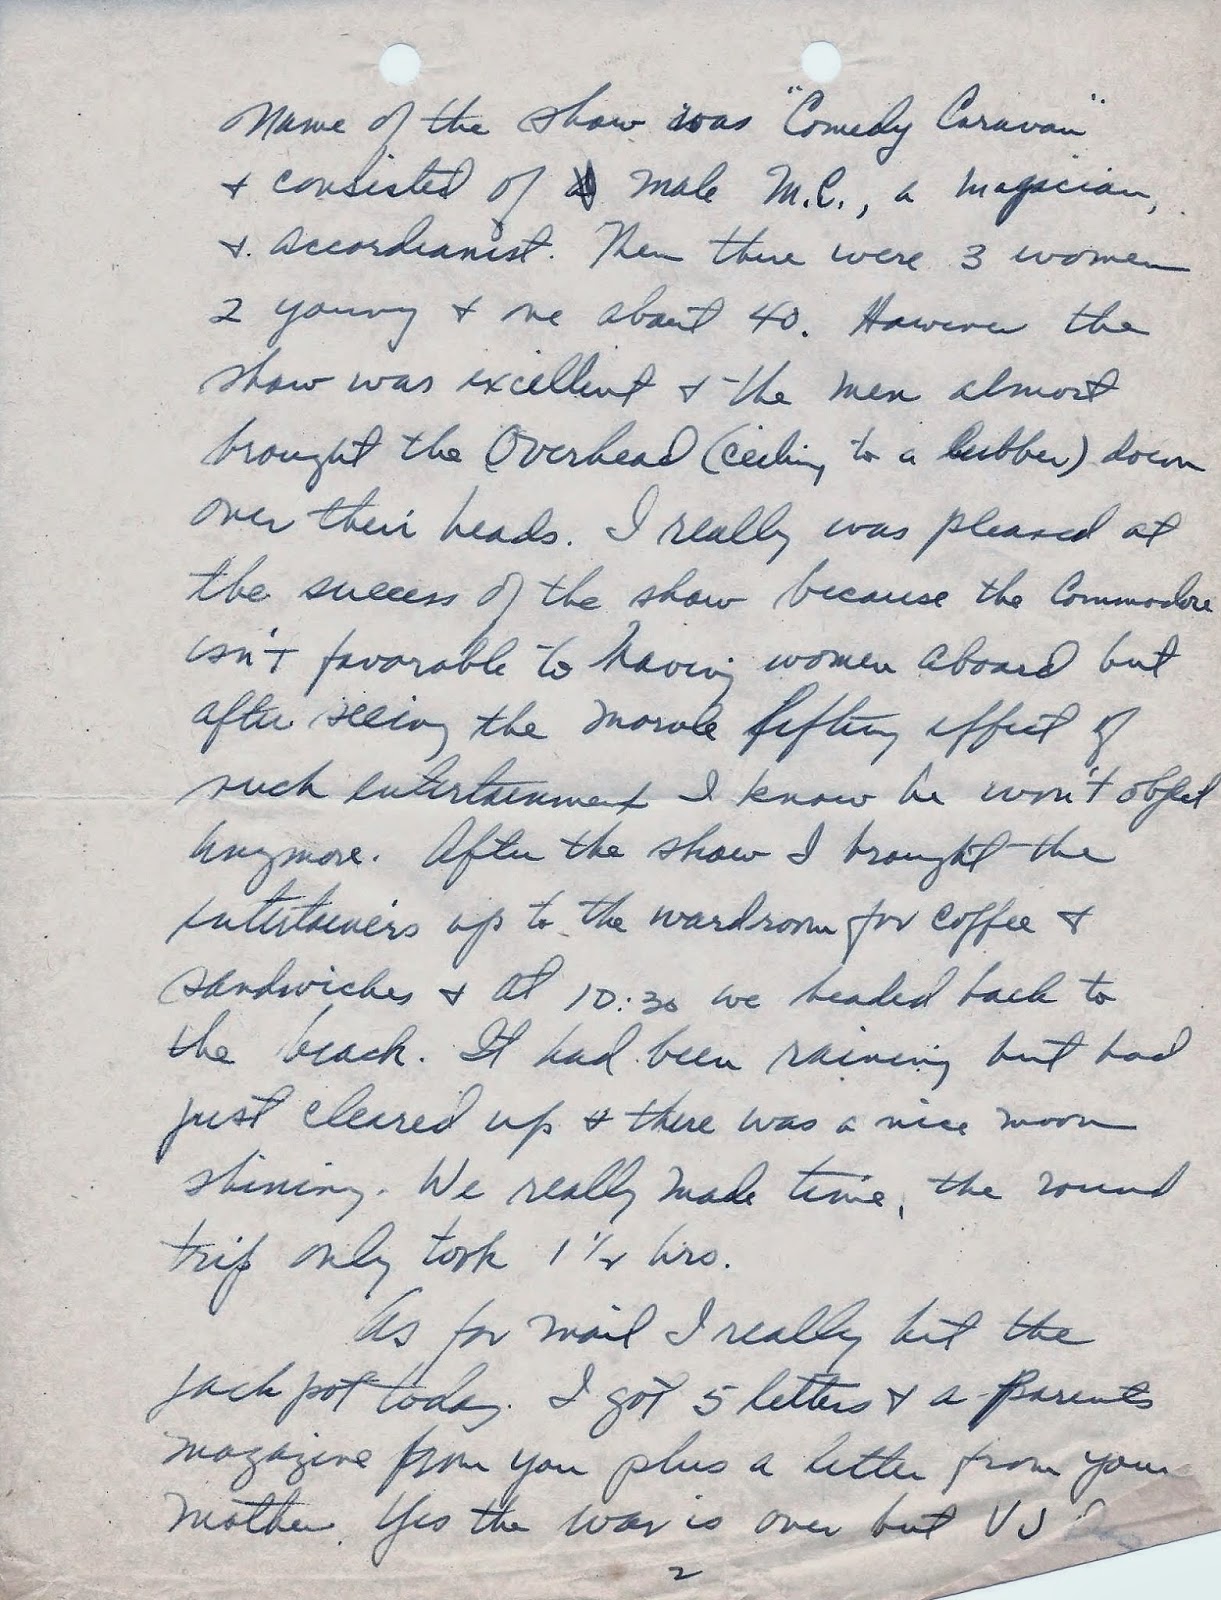 Name of the show was "Comedy Caravan"
& consisted of a male M.C., a magician,
& accordianist. Then there were 3 women
2 young & one about 40. However the
show was excellent & the men almost
brought the Overhead (ceiling to a lubber) down
over their heads. I really was pleased at
the success of the show because the Commodore
isn't favorable to having women aboard but
after seeing the morale lifting effect of
such entertainment I know he won't object
anymore. After the show I brought the
entertainers up to the wardroom for coffee &
sandwiches & at 10:30 we headed back to
the beach. It had been raining but had
just cleared up & there was a nice moon
shining. We really made time, the round
trip only took 1 1/2 hrs.
As for mail I really hit the
jack pot today. I got 5 letters & a Parents
magazine from you plus a letter from your
mother. Yes the war is over but VJ
2